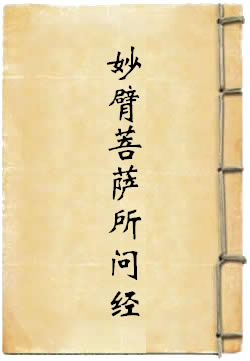 妙臂菩萨所问经